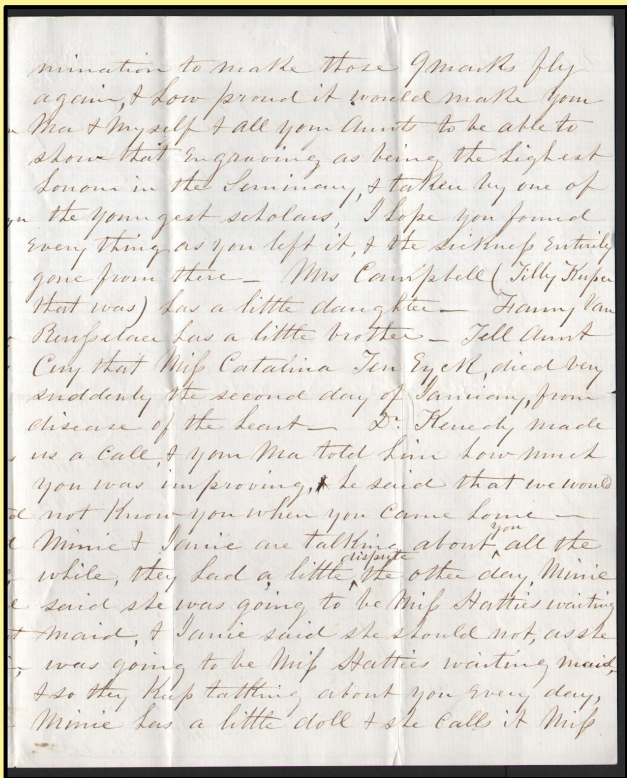 mination to make those 9 marks fly
again, & how proud it would make your
Ma & Myself & all your Aunts to be able to
show that Engraving as being the highest
honour in the Seminary, & taken by one of
the youngest scholars, I hope you found
Every thing as you left it, & the sickness Entirely
gone from there — Mrs Campbell (Tilly
that was) has a little daughter — Fanny Van
Rensselaer has a little brother — Tell Aunt
that Miss Catalina Ten Eyck, died very
suddenly the second day of January, from
disease of the heart — Dr. Kenedy made
us a call, & your Ma told him how much
you was improving, & he said that we would
not Know you when you came home —
Minie & Janie are talking about you all the
while, they had a little dispute the other day, Minie
said she was going to be Miss Hatties waiting
maid, & Janie said she should not, as she
was going to be Miss Hatties waiting maid,
& so they Keep talking about you Every day,
Minie has a little doll & she calls it Miss